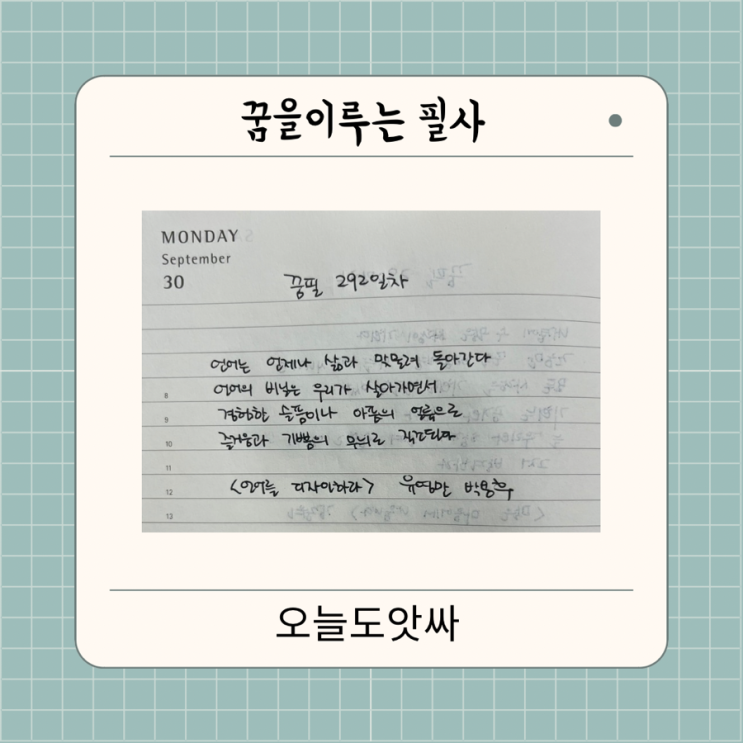 꿈을이루는 필사
MONDAY
September
30
꿈필 292일차
언어는 언제나 삶과 맞물려 돌아간다
언어의 비늘은 우리가 살아가면서
8
경험한 슬픔이나 아픔의 얼룩으로
9
즐거움과 기쁨의 무늬로 직조된다
10
11
<언어를 디자인하라> 유영만 박용후
12
13
오늘도앗싸